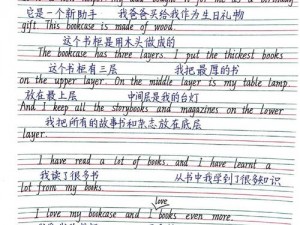 它是一个新助手 我爸爸买给我作为生日礼物
gift. This bookcase is made of wood.
这个书柜是用木头做成的
The bookcase has three layers. I put the thickest books
这个书柜有三层 我把最厚的书
on the upper layer. On the middle layer is my table lamp.
放在最上层 中间层是我的台灯
And I keep all the storybooks and magazines on the lower
我把所有的故事书和杂志放在底层
layer.
I have read a lot of books. and I have learnt a
我读了很多书 从书中我学到了很多知识
lot from my books.
love
I love my bookcase and I books even more.